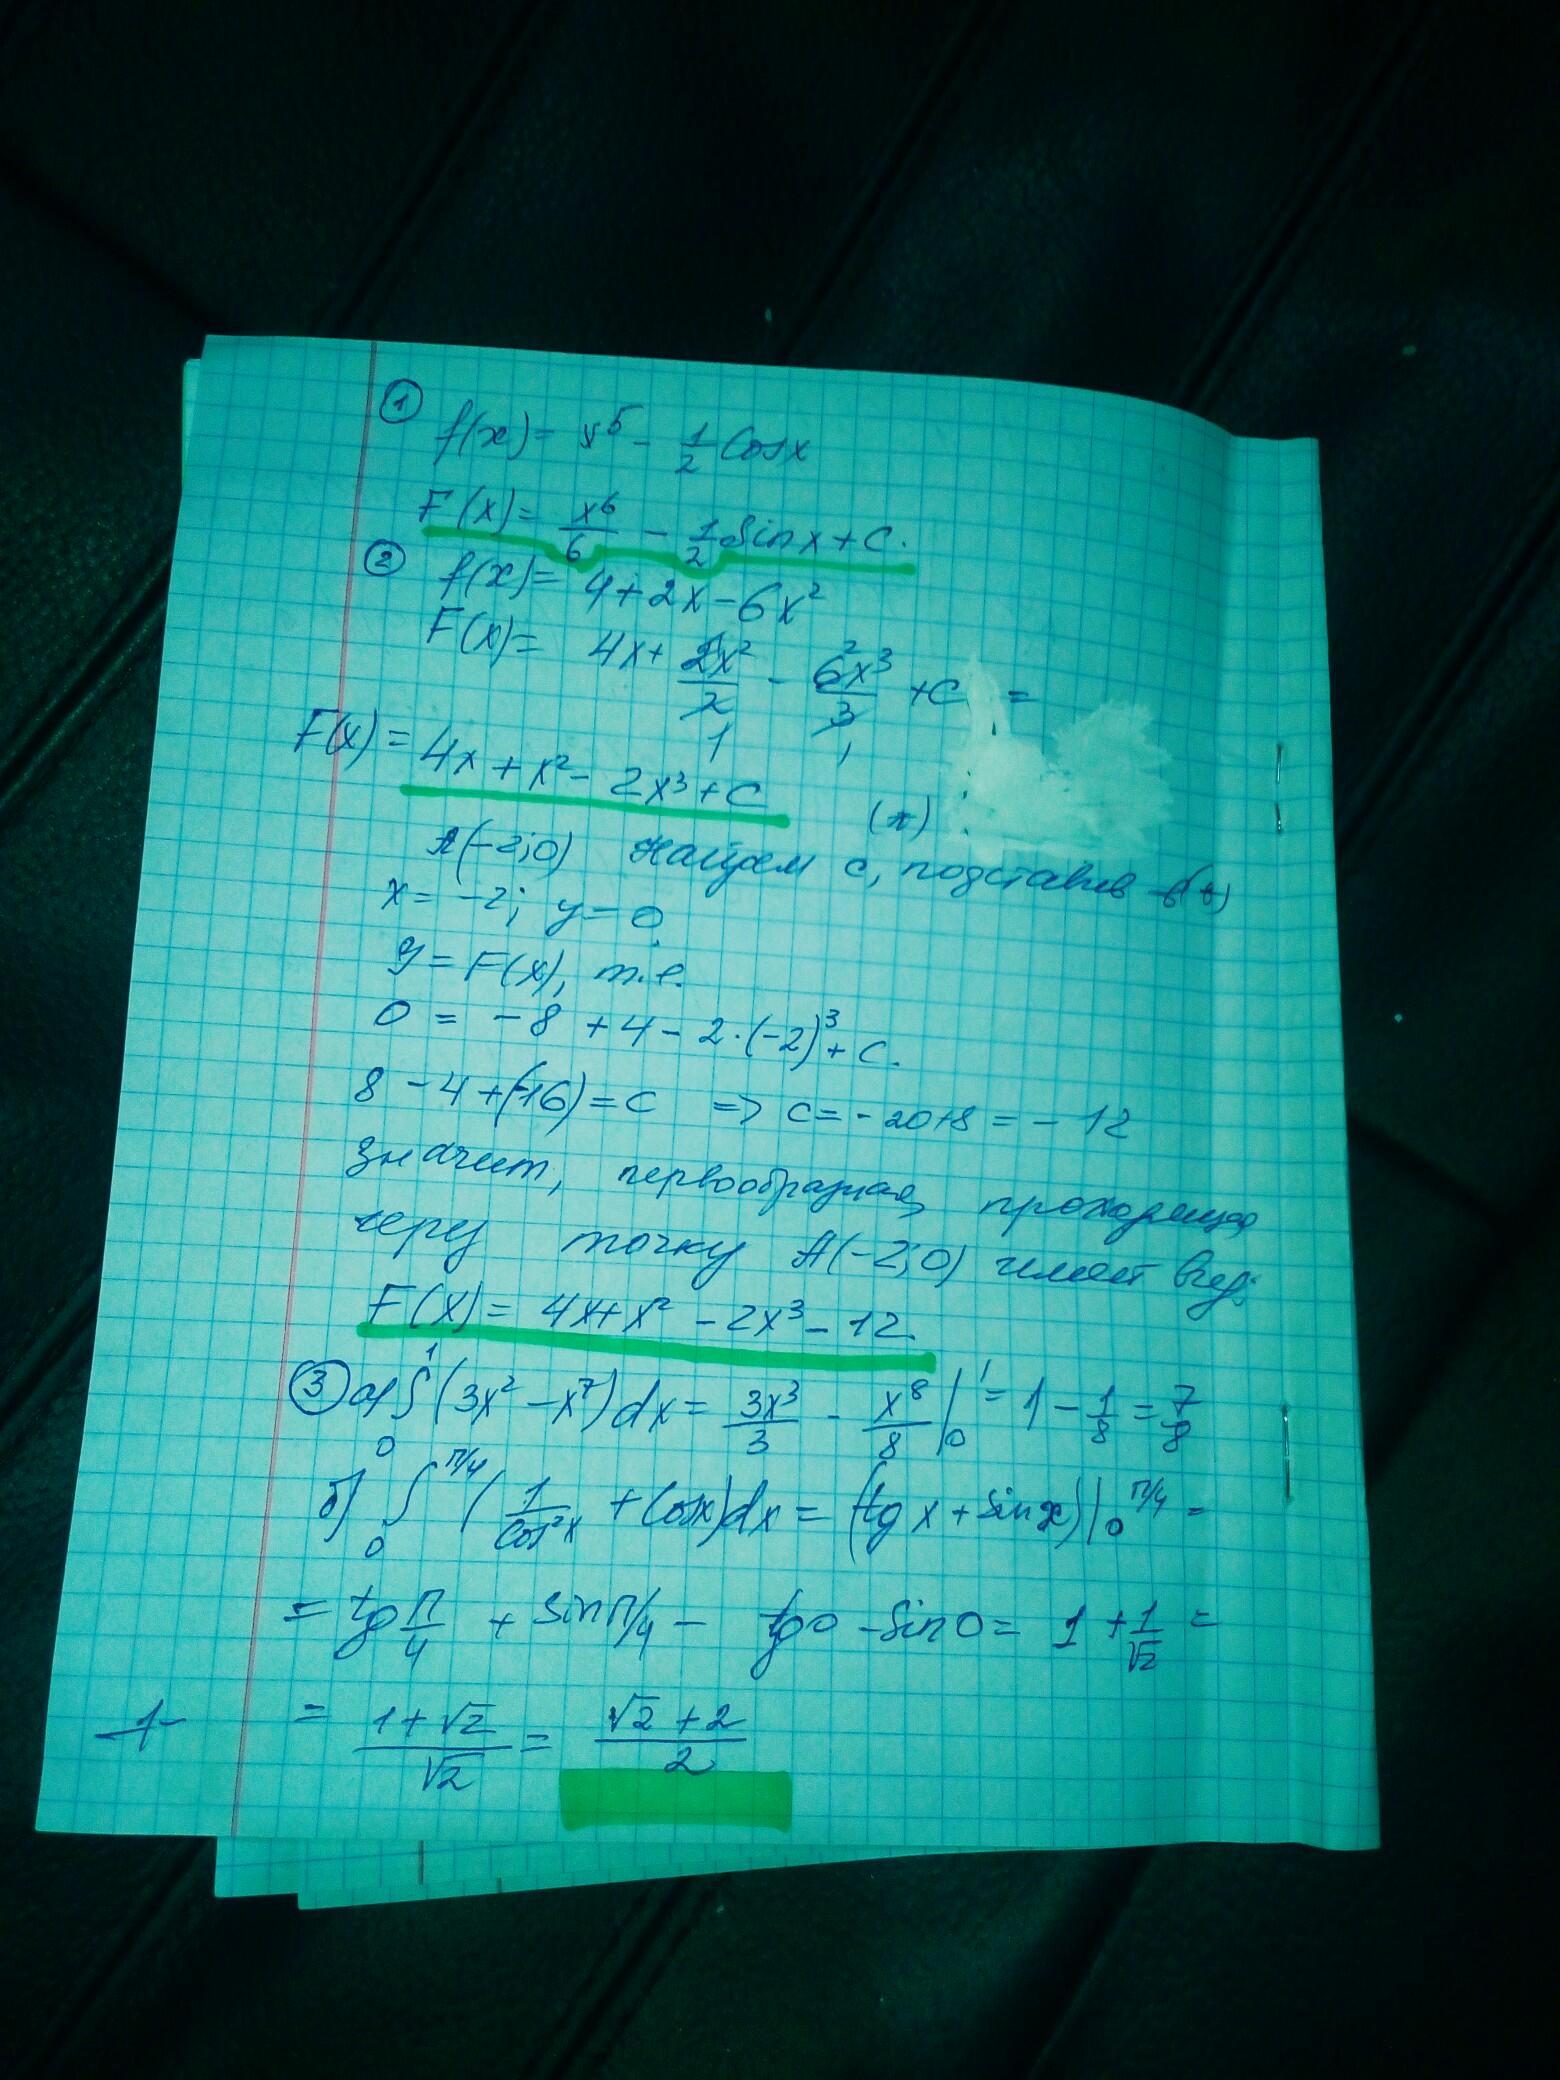 ① f(x) = x⁵ - 1/2 Cosx
F(x) = x⁶/6 - 1/2 Sinx + C.
② f(x) = 4 + 2x - 6x²
F(x) = 4x + 2x²/2 - 6x³/3 + C =
1 2 1
F(x) = 4x + x² - 2x³ + C
(*)
A(-2;0) найдем с, подставив в(*)
x = -2; y = 0
y = F(x), т.е.
0 = -8 + 4 - 2·(-2)³ + C.
8 - 4 + (-16) = C => C = -20+8 = -12
Значит, первообразная, проходящая
через точку A(-2;0) имеет вид:
F(x) = 4x + x² - 2x³ - 12.
③ а) ∫₀¹ (3x² - x⁷) dx = 3x³/3 - x⁸/8 |₀¹ = 1 - 1/8 = 7/8
б) ∫₀^π/4 (1/Cos²x + Cosx) dx = (tg x + Sin x)|₀^π/4 =
= tg π/4 + Sin π/4 - tg 0 - Sin 0 = 1 + 1/√2 =
= (1+√2)/√2 = (√2 + 2)/2
-1-